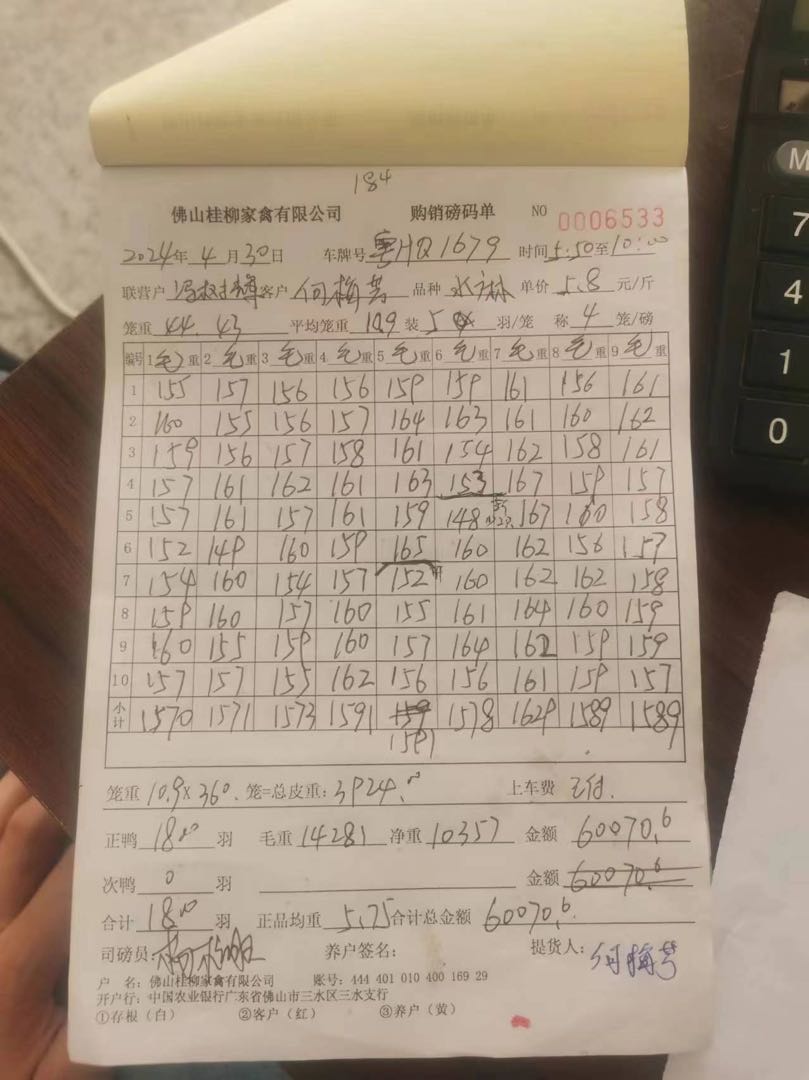 184
佛山桂柳家禽有限公司 购销磅码单 NO 0006533
2024年 4 月 30 日 车牌号 粤HQ1679 时间 5:50 至 10:00
联营户 客户 何梅芳 品种 水麻 单价 5.8 元/斤
笼重 44.43 平均笼重 10.9 装 5 羽/笼 称 4 笼/磅
编号 1 毛重 2 毛重 3 毛重 4 毛重 5 毛重 6 毛重 7 毛重 8 毛重 9 毛重
1 155 157 156 156 159 159 161 156 161
2 160 155 156 157 164 163 161 160 162
3 159 156 157 158 161 154 162 158 161
4 157 161 162 161 163 153 167 159 157
5 157 161 157 161 159 148 167 160 158
6 152 149 160 159 165 160 162 156 157
7 154 160 154 157 152 160 162 162 158
8 159 160 157 160 155 161 164 160 159
9 160 155 159 160 157 164 162 159 159
10 157 157 155 162 156 156 161 159 157
小计 1570 1571 1573 1591 159 1578 1629 1589 1589
1591
笼重 10.9×360 笼=总皮重: 3924.00 上车费 已付
正鸭 1800 羽 毛重 14281 净重 10357 金额 60070.6
次鸭 0 羽 金额 60070.6
合计 1800 羽 正品均重 5.75 合计总金额 60070.6
司磅员: 养户签名: 提货人: 何梅芳
户 名: 佛山桂柳家禽有限公司 账号: 444 401 010 400 169 29
开户行: 中国农业银行广东省佛山市三水区三水支行
①存根（白） ②客户（红） ③养户（黄）
M
7
4
1
0